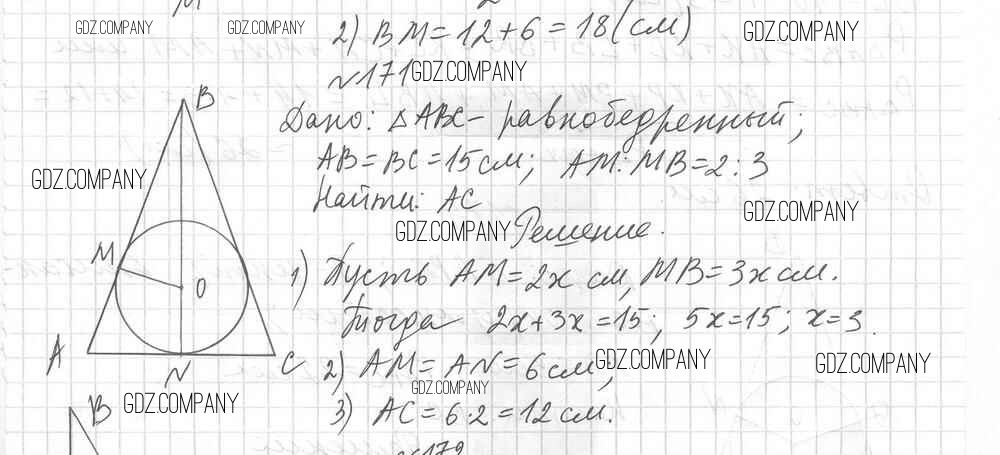 2) BM = 12 + 6 = 18 (см)
GDZ.COMPANY GDZ.COMPANY GDZ.COMPANY
№171 GDZ.COMPANY
B
Дано: △ABC – равнобедренный;
AB = BC = 15 см; AM : MB = 2 : 3
GDZ.COMPANY
Найти: AC
GDZ.COMPANY
GDZ.COMPANY Решение.
M
O
1) Пусть AM = 2x см, MB = 3x см.
Тогда 2x + 3x = 15; 5x = 15; x = 3.
A
N
C
2) AM = AN = 6 см, GDZ.COMPANY GDZ.COMPANY
GDZ.COMPANY
B GDZ.COMPANY
3) AC = 6 · 2 = 12 см.
№172